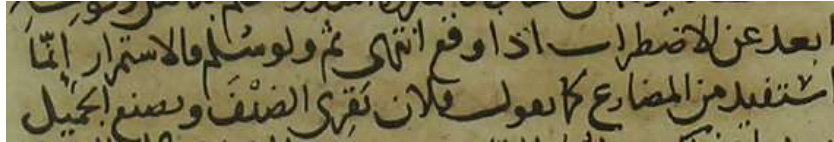 ابعد عن الاضطراب اذا وقع انتهى ثم ولو سلم فالاستمرار إنما
استفيد من المضارع كما يقول فلان يقري الضيف ويصنع الجميل